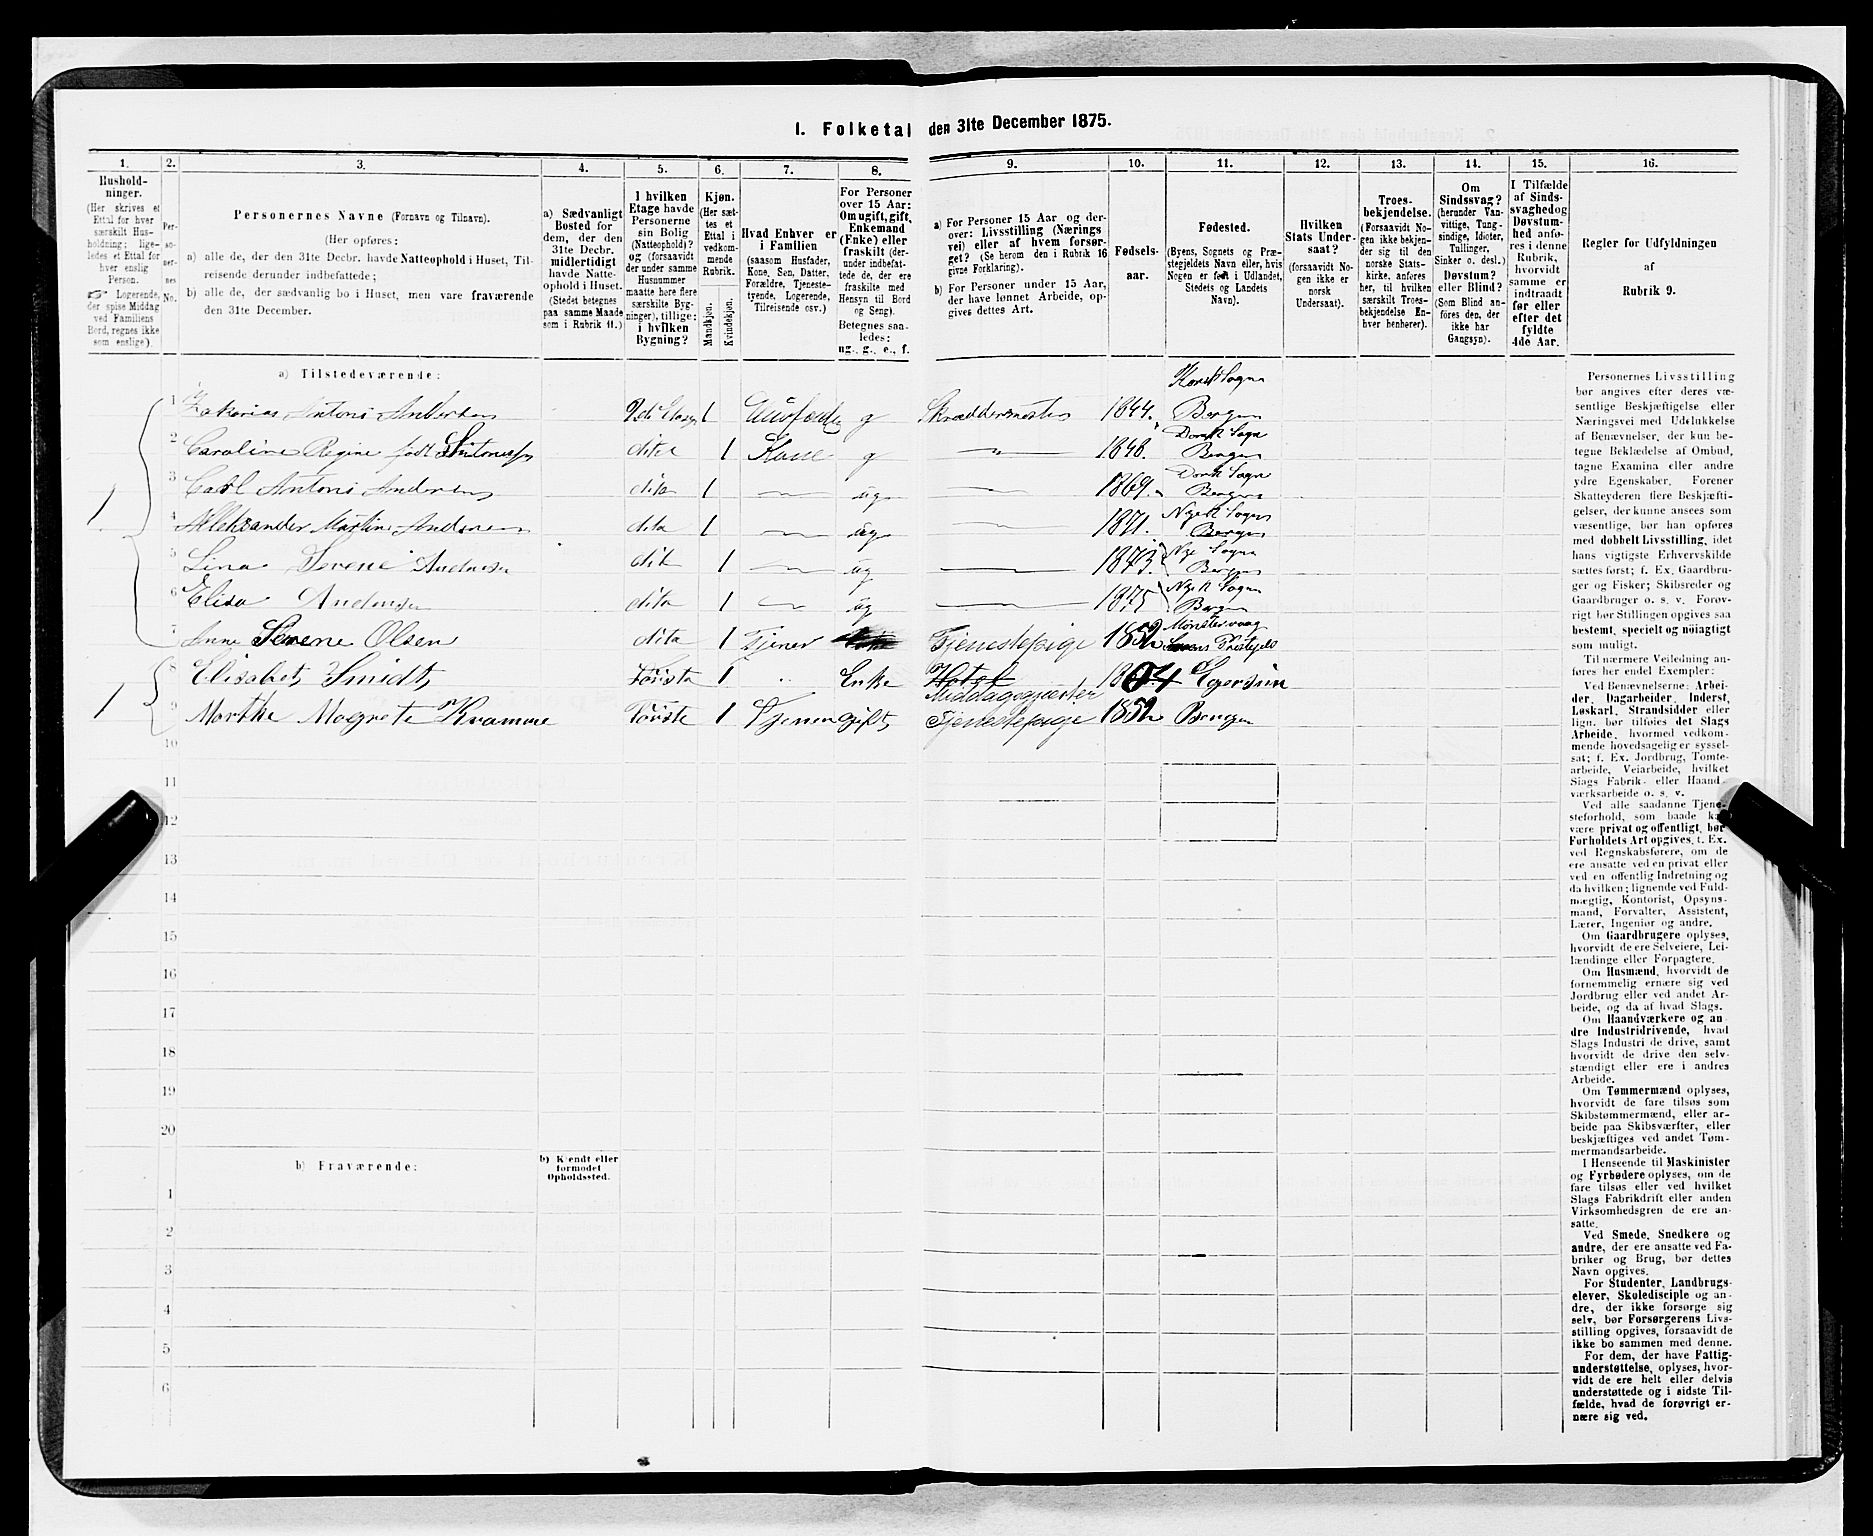 I. Folketal den 31te December 1875.
1. 2. 3. 4. 5. 6. 7. 8. 9. 10. 11. 12. 13. 14. 15. 16.
Hushold-
ninger.
(Her skrives et
Ettal for hver
særskilt Hus-
holdning; lige-
ledes et Ettal for
hver enslig
Person.
☞ Logerende,
der spise Middag
ved Familiens
Bord, regnes ikke
som enslige).
Per-
so-
ner-
nes
No.
Personernes Navne (Fornavn og Tilnavn).
(Her opføres:
a) alle de, der den 31te Decbr. havde Natteophold i Huset, Til-
reisende derunder indbefattede;
b) alle de, der sædvanlig bo i Huset, men vare fraværende
den 31te December.
a) Sædvanligt
Bosted for
dem, der den
31te Decbr.
midlertidigt
havde Natte-
ophold i Huset.
(Stedet betegnes
paa samme Maade
som i Rubrik 11.)
I hvilken
Etage havde
Personerne
sin Bolig
(Natteophold)?
og (forsaavidt
der under samme
Husnummer
maatte høre flere
særskilte Byg-
ninger), tillige:
i hvilken
Bygning?
Kjøn.
(Her sæt-
tes et
Ettal i
vedkom-
mende
Rubrik.
Mandkjøn.
Kvindekjøn.
Hvad Enhver er
i Familien
(saasom Husfader,
Kone, Søn, Datter,
Forældre, Tjeneste-
tyende, Logerende,
Tilreisende osv.)
For Personer
over 15 Aar:
Om ugift, gift,
Enkemand
(Enke) eller
fraskilt (der-
under indbefat-
tede de, der ere
fraskilte med
Hensyn til Bord
og Seng).
Betegnes saa-
ledes:
ug., g., e., f.
a) For Personer 15 Aar og der-
over: Livsstilling (Nærings
vei) eller af hvem forsør-
get? (Se herom den i Rubrik 16
givne Forklaring).
b) For Personer under 15 Aar,
der have lønnet Arbeide, op-
gives dettes Art.
Fødsels-
aar.
Fødested.
(Byens, Sognets og Præ-
stegjeldets Navn eller, hvis
Nogen er født i Udlandet,
Stedets og Landets
Navn).
Hvilken
Stats Under-
saat?
(forsaavidt No-
gen ikke er
norsk
Undersaat).
Troes-
bekjendelse.
(Forsaavidt No-
gen ikke bekjen-
der sig til den
norske Stats-
kirke, anføres
her, til hvilken
særskilt Troes-
bekjendelse En-
hver henhører).
Om
Sindssvag?
(herunder Van-
vittige, Tung-
sindige, Idioter,
Tullinger,
Sinker o. desl.)
Døvstum?
eller Blind?
(Som Blind an-
føres den, der
ikke har
Gangsyn).
I Tilfælde
af Sinds-
svaghed og
Døvstum-
hed anfø-
res i denne
Rubrik,
hvorvidt
samme er
indtraadt
før eller
efter det
fyldte
4de Aar.
Regler for Udfyldningen
af
Rubrik 9.
a) Tilstedeværende:
Korsk Sogn
1 Zakarias Antoni Andersen 2de Etage 1 Huusfader g Skræddermester 1844. Bergen
2 Caroline Regine født Antonisen dito 1 Kone g 1848. Domk Sogn Bergen
3 Carl Antoni Andersen dito 1 ug 1869. Domk Sogn Bergen
4 Alleksander Martin Andersen dito 1 ug 1871. Nyek Sogn Bergen
5 Lina Serene Andersen dito 1 ug 1873. Nye Sogn Bergen
6 Elisa Andersen dito 1 ug 1875 Nyek Sogn Bergen
7 Anne Serene Olsen dito 1 Tjener Tjenestepige 1852 Mønstervaag Prestegjeld
1 8 Elisabet Smidt Første 1 Enke Middagsgjæster 1804 Egersun
1 9 Marthe Magrete Kramme Første 1 Tjener gift Tjenestepige 1852 Bergen
10
11
12
13
14
15
16
17
18
19
20
b) Fraværende:
b) Kjendt eller
formodet
Opholdssted.
1
2
3
4
5
6
Personernes Livsstilling
bør angives efter deres væ-
sentlige Beskjæftigelse eller
Næringsvei med Udelukkelse
af Benævnelser, der kun be-
tegne Beklædelse af Ombud,
tagne Examina eller andre
ydre Egenskaber. Forener
Skatteyderen flere Beskjæfti-
gelser, der kunne ansees som
væsentlige, bør han opføres
med dobbelt Livsstilling, idet
hans vigtigste Erhvervskilde
sættes først; f. Ex. Gaardbru-
ger og Fisker; Skibsreder og
Gaardbruger o. s. v. Forøv-
rigt bør Stillingen opgives saa
bestemt, specielt og nøiagtigt
som muligt.
Til nærmere Veiledning an-
føres her endel Exempler:
Ved Benævnelserne: Arbei-
der, Dagarbeider, Inderst,
Løskarl, Strandsidder eller
lign. bør tilføies det Slags
Arbeide, hvormed vedkom-
mende hovedsagelig er syssel-
sat; f. Ex. Jordbrug, Tomte-
arbeide, Veiarbeide, hvilket
Slags Fabrik- eller Haand-
værksarbeide o. s. v.
Ved alle saadanne Tjene-
steforhold, som baade ka
være privat og offentligt, bør
Forholdets Art opgives, t. Ex.
ved Regnskabsførere, om de
ere ansatte ved en privat eller
ved en offentlig Indretning og
da hvilken; lignende ved Fuld-
mægtig, Kontorist, Opsyns-
mand, Forvalter, Assistent,
Lærer, Ingeniør og andre.
Om Gaardbrugere oplyses,
hvorvidt de ere Selveiere, Lei-
lændinge eller Forpagtere.
Om Husmænd, hvorvidt de
fornemmelig ernære sig ved
Jordbrug eller ved andet Ar-
beide, og da af hvad Slags.
Om Haandværkere og an-
dre Industridrivende, hvad
Slags Industri de drive, samt
hvorvidt de drive den selv-
stændigt eller ere i andres
Arbeide.
Om Tømmermænd oplyses,
hvorvidt de fare tilsøs som
Skibstømmermænd, eller ar-
beide paa Skibsværfter, eller
beskjæftiges ved andet Tøm-
mermandsarbeide.
I Henseende til Maskinister
og Fyrbødere oplyses, om de
fare tilsøs eller ved hvilket
Slags Fabrikdrift eller anden
Virksomhedsgren de ere an-
satte.
Ved Smede, Snedkere og
andre, der ere ansatte ved Fa-
briker og Brug, bør dettes
Navn opgives.
For Studenter, Landbrugs-
elever, Skoledisciple og an-
dre, der ikke forsørge sig
selv, bør Forsørgerens Livs-
stilling opgives, forsaavidt de
ikke bo sammen med denne.
For dem, der have Fattig-
understøttelse, oplyses, hvor-
vidt de ere helt eller delvis
understøttede og i sidste Til-
fælde, hvad de forøvrigt er-
nære sig ved.